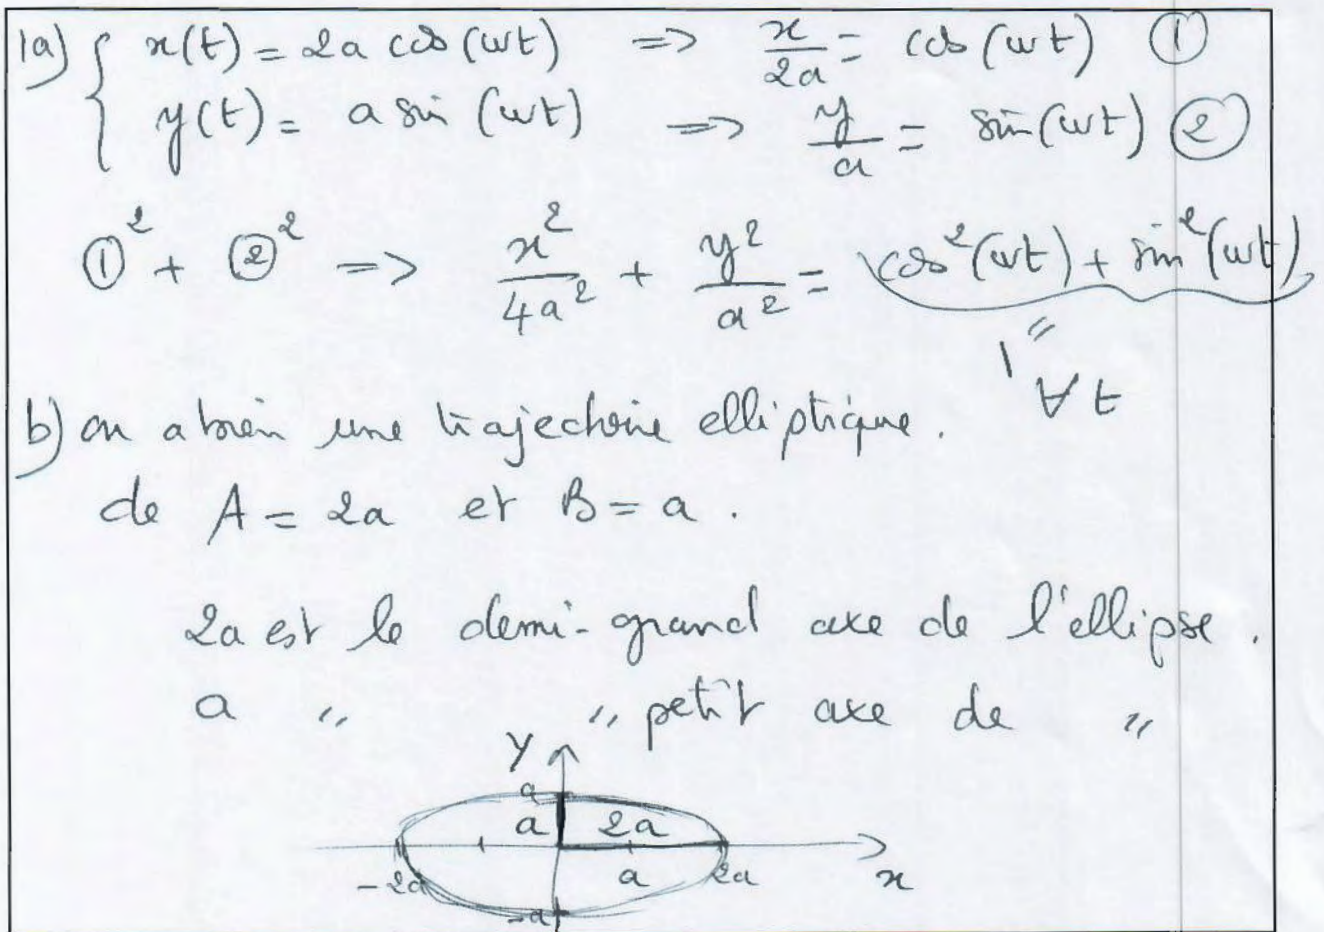 1a) { x(t) = 2a cos(ωt) => x/2a = cos(ωt) ①
y(t) = a sin(ωt) => y/a = sin(ωt) ②
①² + ②² => x²/4a² + y²/a² = cos²(ωt) + sin²(ωt)
" 
1 ∀t
b) on a bien une trajectoire elliptique.
de A = 2a et B = a.
2a est le demi-grand axe de l'ellipse.
a " " petit axe de "
y
a
a 2a
-2a a 2a x
-a